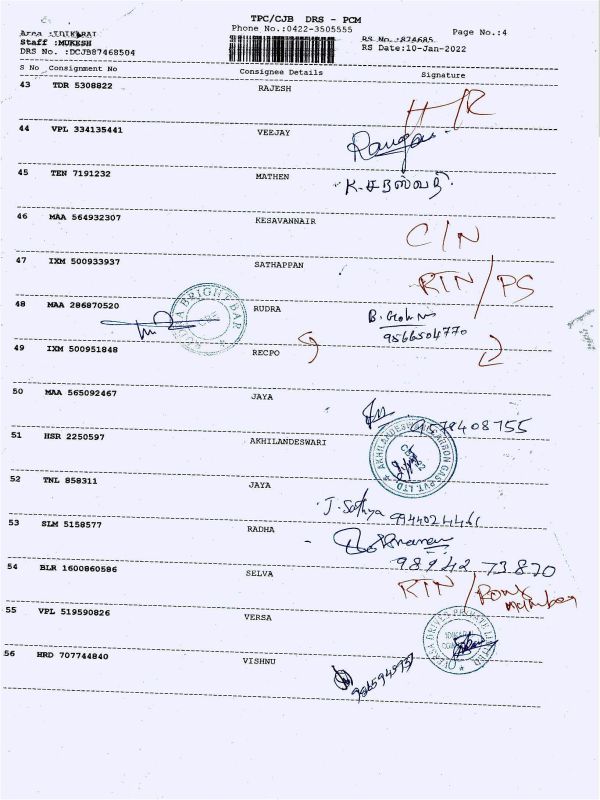 TPC/CJB DRS - PCM
Phone No.:0422-3505555
Page No.:4
Area :IDIKARAI
Staff :MUKESH
RS No.:874685
DRS No. :DCJB87468504
RS Date:10-Jan-2022
S No Consignment No Consignee Details Signature
43 TDR 5308822 RAJESH
44 VPL 334135441 VEEJAY
45 TEN 7191232 MATHEN
K. சரஸ்வதி
46 MAA 564932307 KESAVANNAIR
C/N
47 IXM 500933937 SATHAPPAN
RTN/PS
48 MAA 286870520 RUDRA
BRIGHT BAR
CBE
9566504770
49 IXM 500951848 RECPO
50 MAA 565092467 JAYA
9578408755
51 HSR 2250597 AKHILANDESWARI
AKHILANDESWARI CARBON GAS PVT. LTD
52 TNL 858311 JAYA
J. Sathya 9944024461
53 SLM 5158577 RADHA
98942 73820
54 BLR 1600860586 SELVA
RTN /
55 VPL 519590826 VERSA
56 HRD 707744840 VISHNU